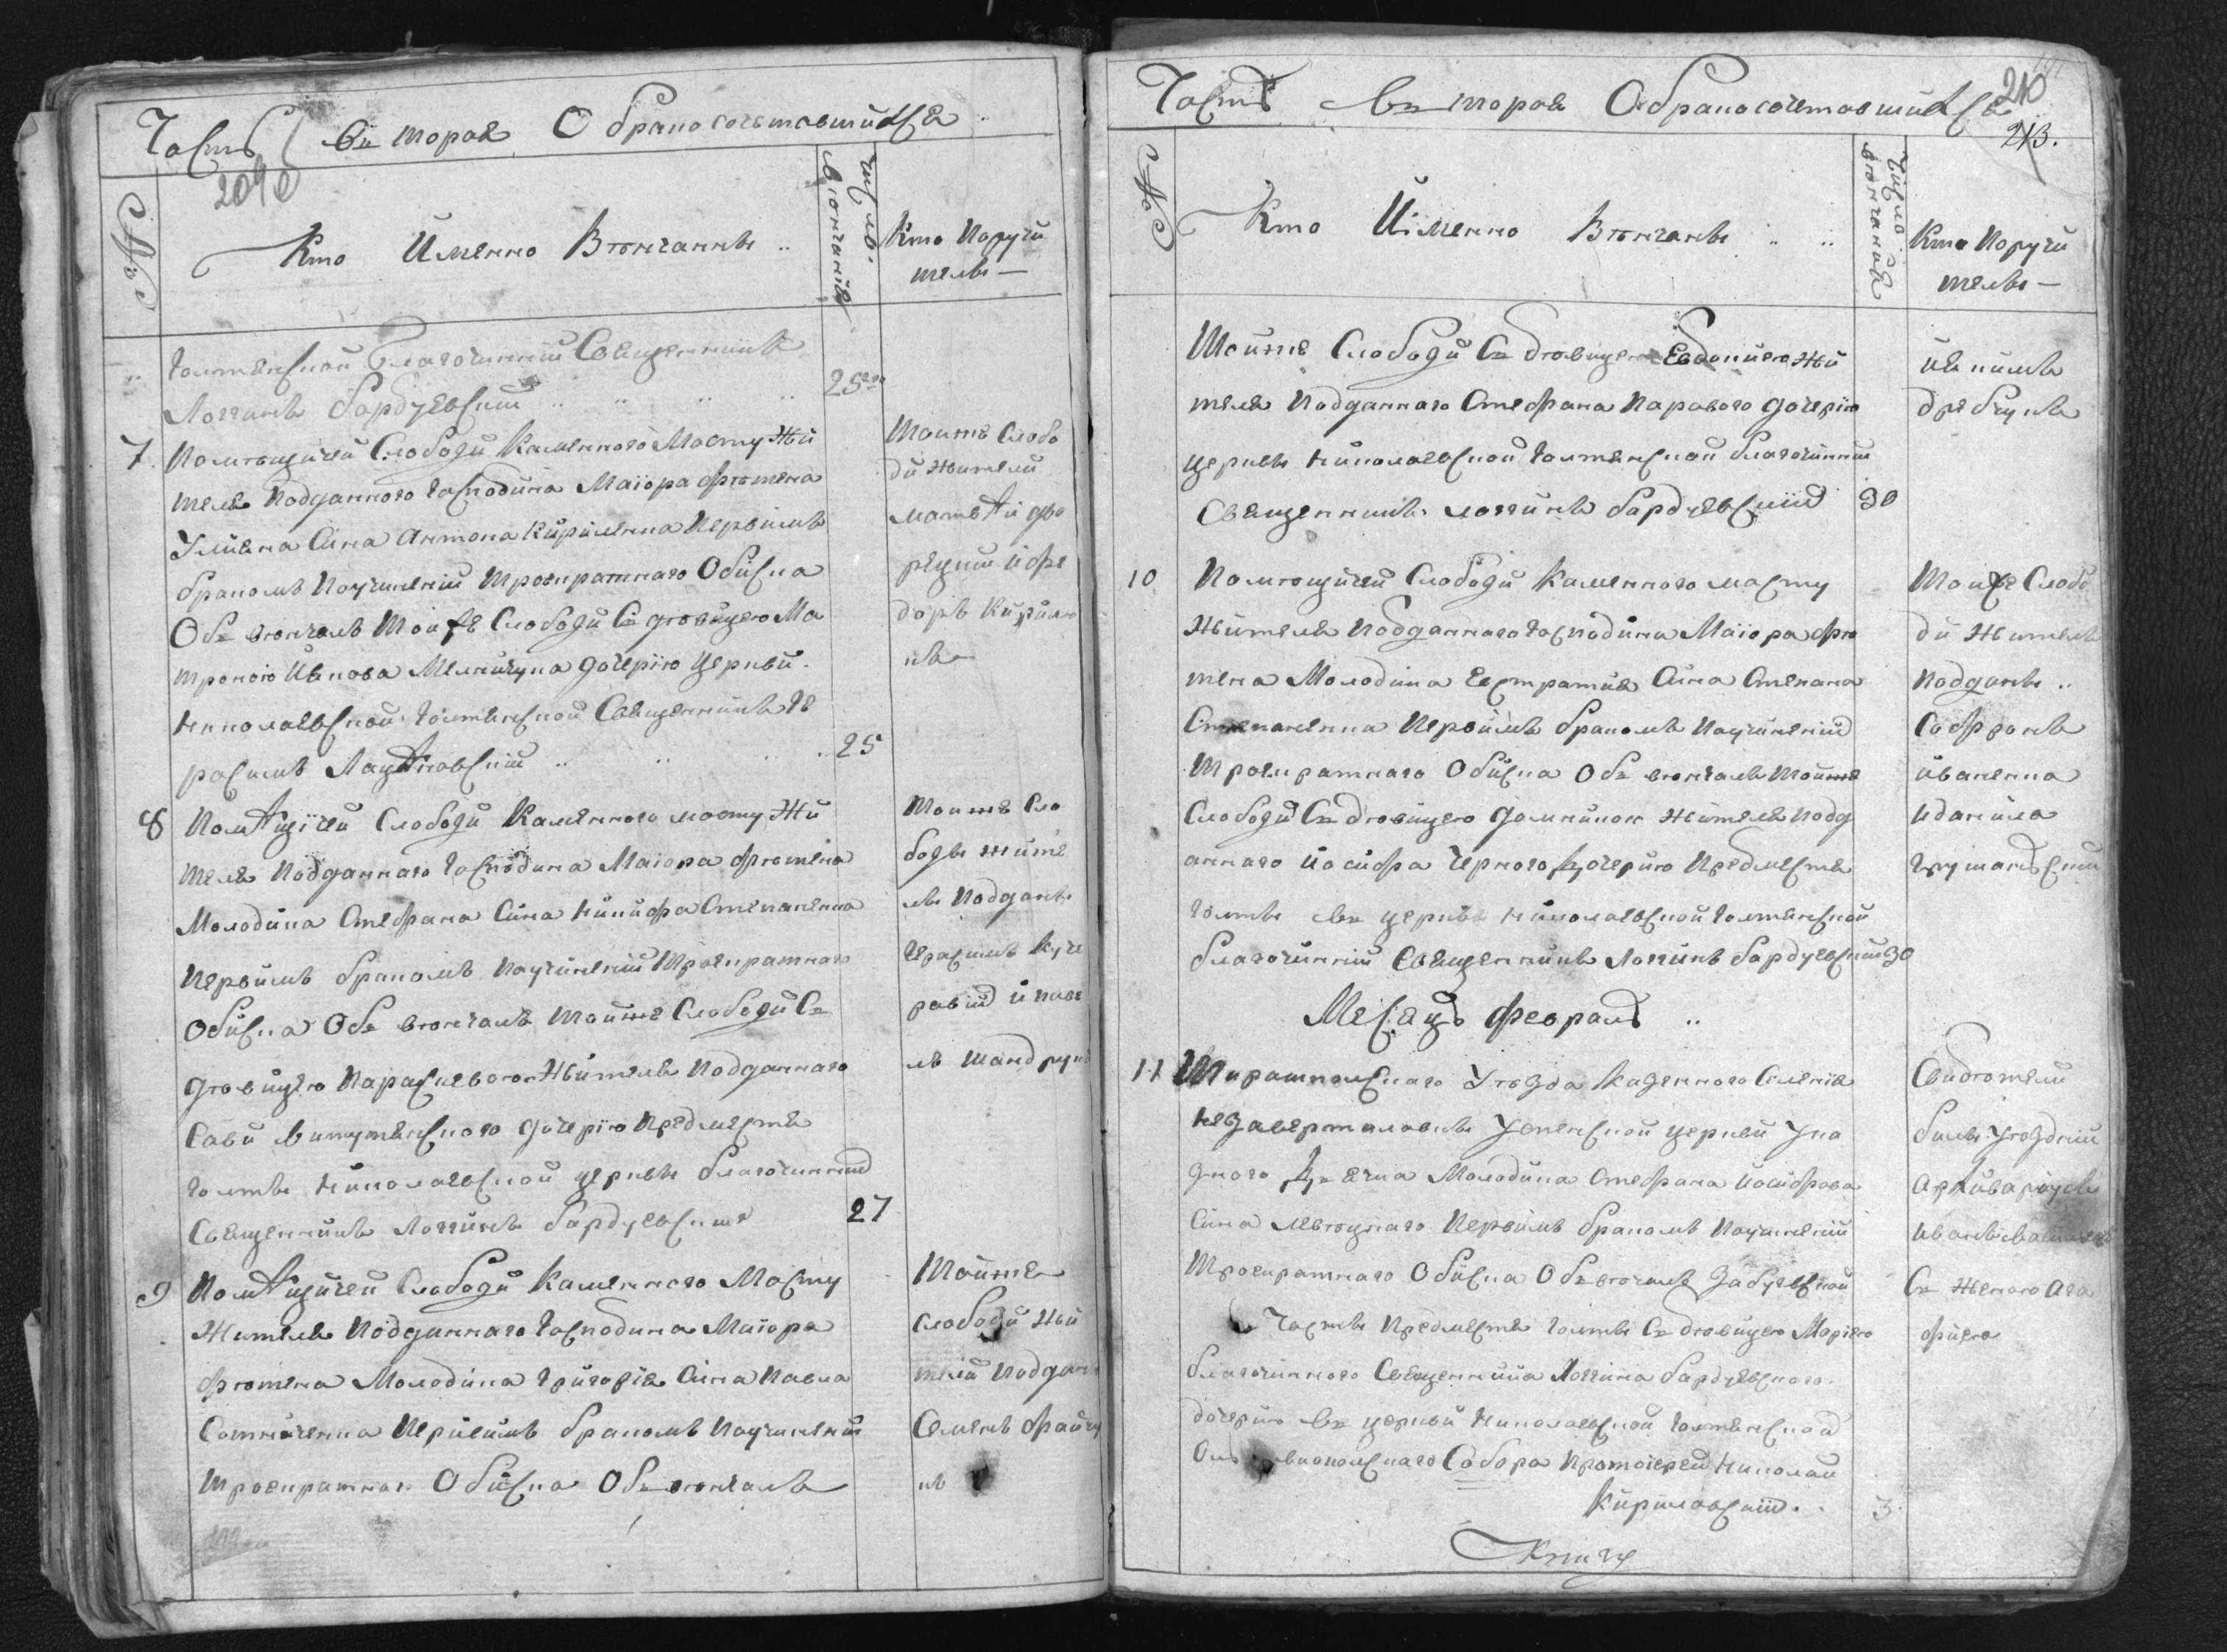 Часть въторая О бракосочетавшихся
209
№
Кто Именно Венчанъ
число венчания
Кто Поручи
тель —
Голтянской Благочинний Священникъ
Логгинъ Бардуевский 25
7. Помещичей Слободи Каменного Мосту Жи
теля Подданного Господина Маіора Фютена
Сина Антона Кириленка Первимъ
бракомъ Поучинении Троекратнаго Обиска
Объ венчалъ Тоиже Слободи Съ девицею Ма
троною Мелничука дочерію Церкви
Николаевской Голтянской Священникъ Ге
расимъ 25
Тоижъ Слобо
ди жители
матвей дво
рецкий и фе
доръ Кирило
къ
8 Помещичей Слободи Каменного мосту Жи
теля Подданного Господина Маіора Фютена
Молодика Стефана Сина Никифа Степаненка
Первимъ бракомъ Поучинении Троекратнаго
Обиска Объ венчалъ Тоиже Слободи Съ
девицею Параскевою Жителя Подданного
Сави дочерію Предместя
Голти Николаевской церкви благочинний
Священникъ Логгинъ Бардуевский 27
Тоижъ Сло
боди жите
ли Поддани
Герасимъ Куче
равий и паве
лъ Шандрук
9 Помещичей Слободи Каменного Мосту
Жителя Подданнаго Господина Маіора
Фютена Молодика Григорія Сина Павла
Сотниченка Первимъ бракомъ Поучинении
Троекратнаго Обиска Объ венчалъ
Тоиже
слободи жи
тели Поддан
Семенъ
къ
Часть въторая О бракосочетавшихся
210
213.
№
Кто Именно Венчанъ
Число венчания
Кто Поручи
тель —
Тоиже Слободи Съ девицею Евдокиею Жи
теля Подданнаго Стефана Парового дочерію
церкви Николаевской Голтянской благочинний
Священникъ логгинъ Бардуевский 30
10 Помещичей Слободи Каменного мосту
Жителя Подданнаго Господина Маіора Фю
тена Молодика Евстратия Сина Степана
Степаненка Первимъ бракомъ Поучинении
Троекратнаго Обиска Объ венчалъ Тоиже
Слободи Съ девицею Домникою жителя Подд
аннаго Иосифа Черного дочерію Предместя
Голти въ церкве Николаевской Голтянской
благочинний Священникъ Логгинъ Бардуевский 30
Тоиже Слобо
ди Жители
Поддани
Софронъ
иваненка
и данила
Месяцъ февраль
11 Тираспольского Уезда Казенного Селения
Незаверталовки Успенской церкви Ука
зного Дьячка Молодика Стефана Иосифова
Сина Первимъ бракомъ Поучинении
Троекратнаго Обиска Обвенчалъ
Часть Предместя Голти Съ девицею Маріею
благочинного Священника Логгина Бардуевского
дочерію въ церкви Николаевской Голтянской
Собора Протоіерей Николай
Кириловский 3
Свидетели
били Уездний
Иванъ
Съ женою Ага
фиею
Книгу